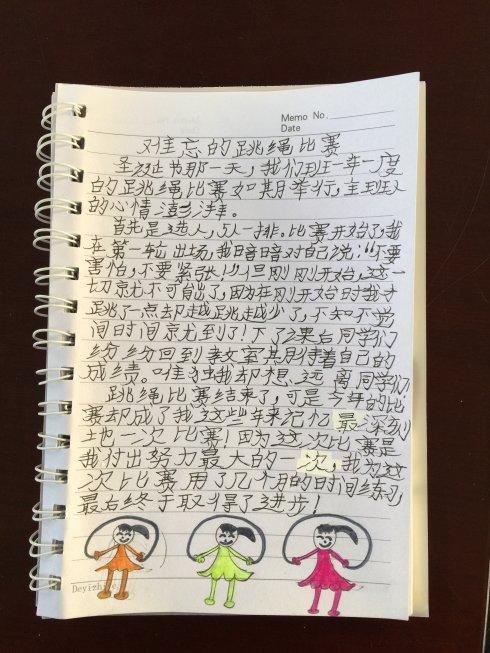 Memo No.
Date
难忘的跳绳比赛
圣诞节那一天，我们班一年一度
的跳绳比赛如期举行，全班人
的心情澎湃。
首先是选人，5人一排。比赛开始了，我
在第一轮出场，我暗暗对自己说："不要
害怕，不要紧张！"但刚刚开始，这一
切就不可能了，因为在刚开始时我才
跳了一点却越跳越少了，不知不觉
间时间就到了！下了课后同学们
纷纷回到教室期待着自己的
成绩。唯独我却想远离同学们
跳绳比赛结束了，可是今年的比
赛却成了我这些年来记忆最深刻
地一次比赛！因为这次比赛是
我付出努力最大的一次，我为这
次比赛用了几个月的时间练习，
最后终于取得了进步！